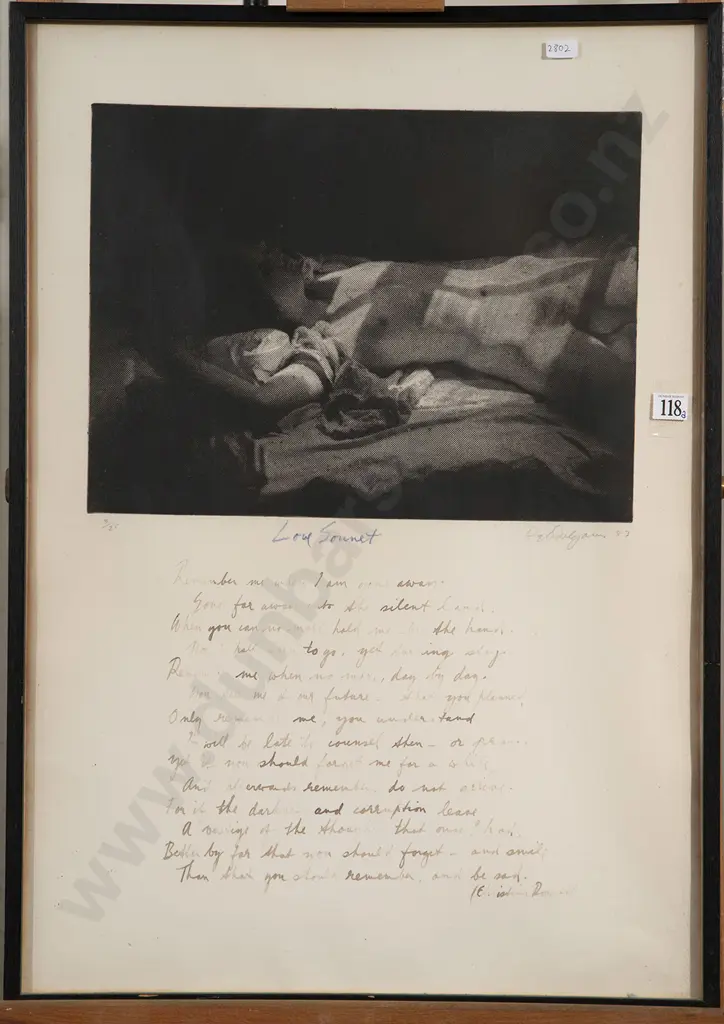 2802
118
Love Sonnet
Remember me when I am gone away.
Gone far away into the silent land.
When you can no more hold me by the hand.
Nor I half to go, yet ing stay.
Remember me when no more, day by day.
You me our future. that you planned,
Only remember me, you understand
It will be late to counsel then - or pray.
yet if you should forget me for a while
And afterwards remember, do not grieve.
For if the darkness and corruption leave
A vestige of the thoughts that once I had,
Better by far that you should forget - and smile
Than that you should remember, and be sad.
www.dunbarsloane.co.nz